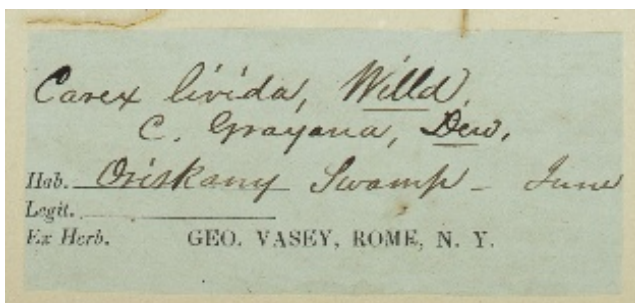 Carex livida, Willd.
C. Grayana, Dew.
Hab. Oriskany Swamp - June
Legit.
Ex Herb. GEO. VASEY, ROME, N. Y.